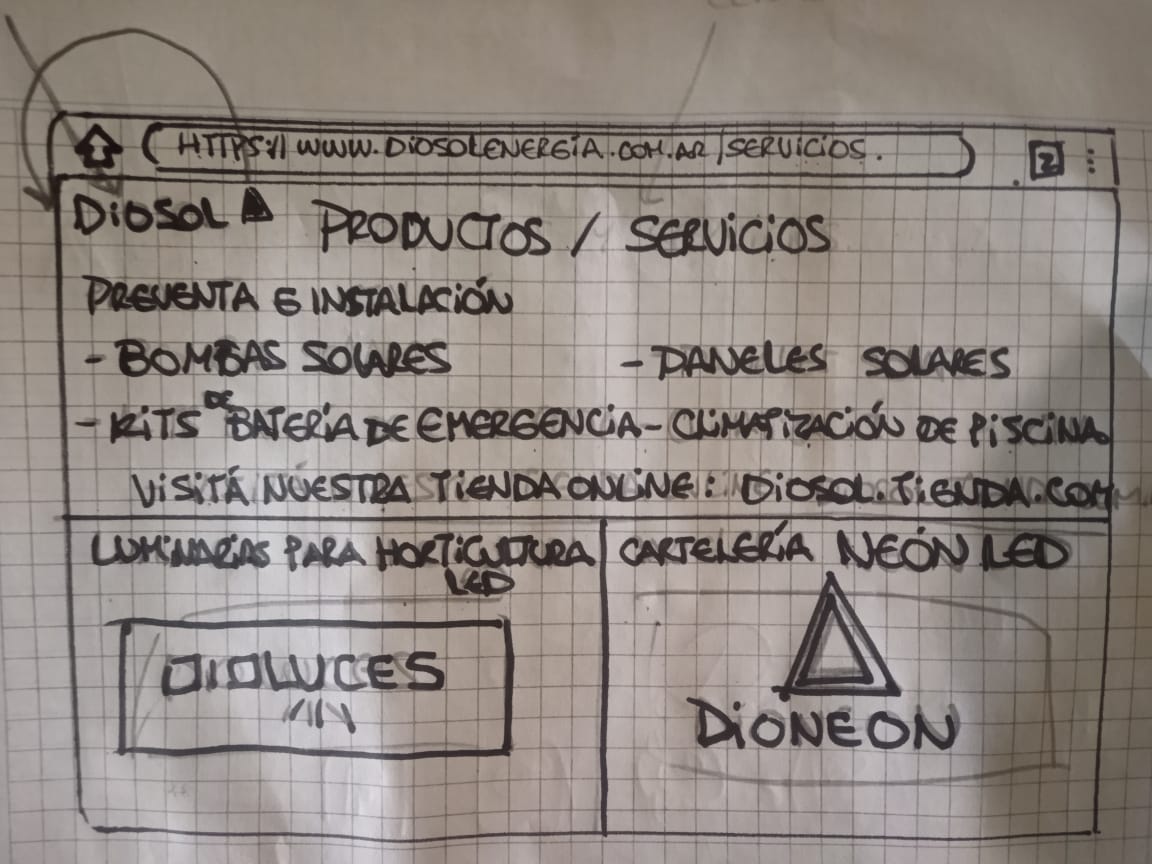 HTTPS:// WWW.DIOSOLENERGÍA.COM.AR/SERVICIOS.
2
DIOSOL PRODUCTOS / SERVICIOS
PREVENTA E INSTALACIÓN
- BOMBAS SOLARES - PANELES SOLARES
- KITS DE BATERÍA DE EMERGENCIA - CLIMATIZACIÓN DE PISCINA
VISITÁ NUESTRA TIENDA ONLINE: DIOSOL.TIENDA.COM
LUMINARIAS PARA HORTICULTURA
LED
DIOLUCES
CARTELERÍA NEÓN LED
DIONEON